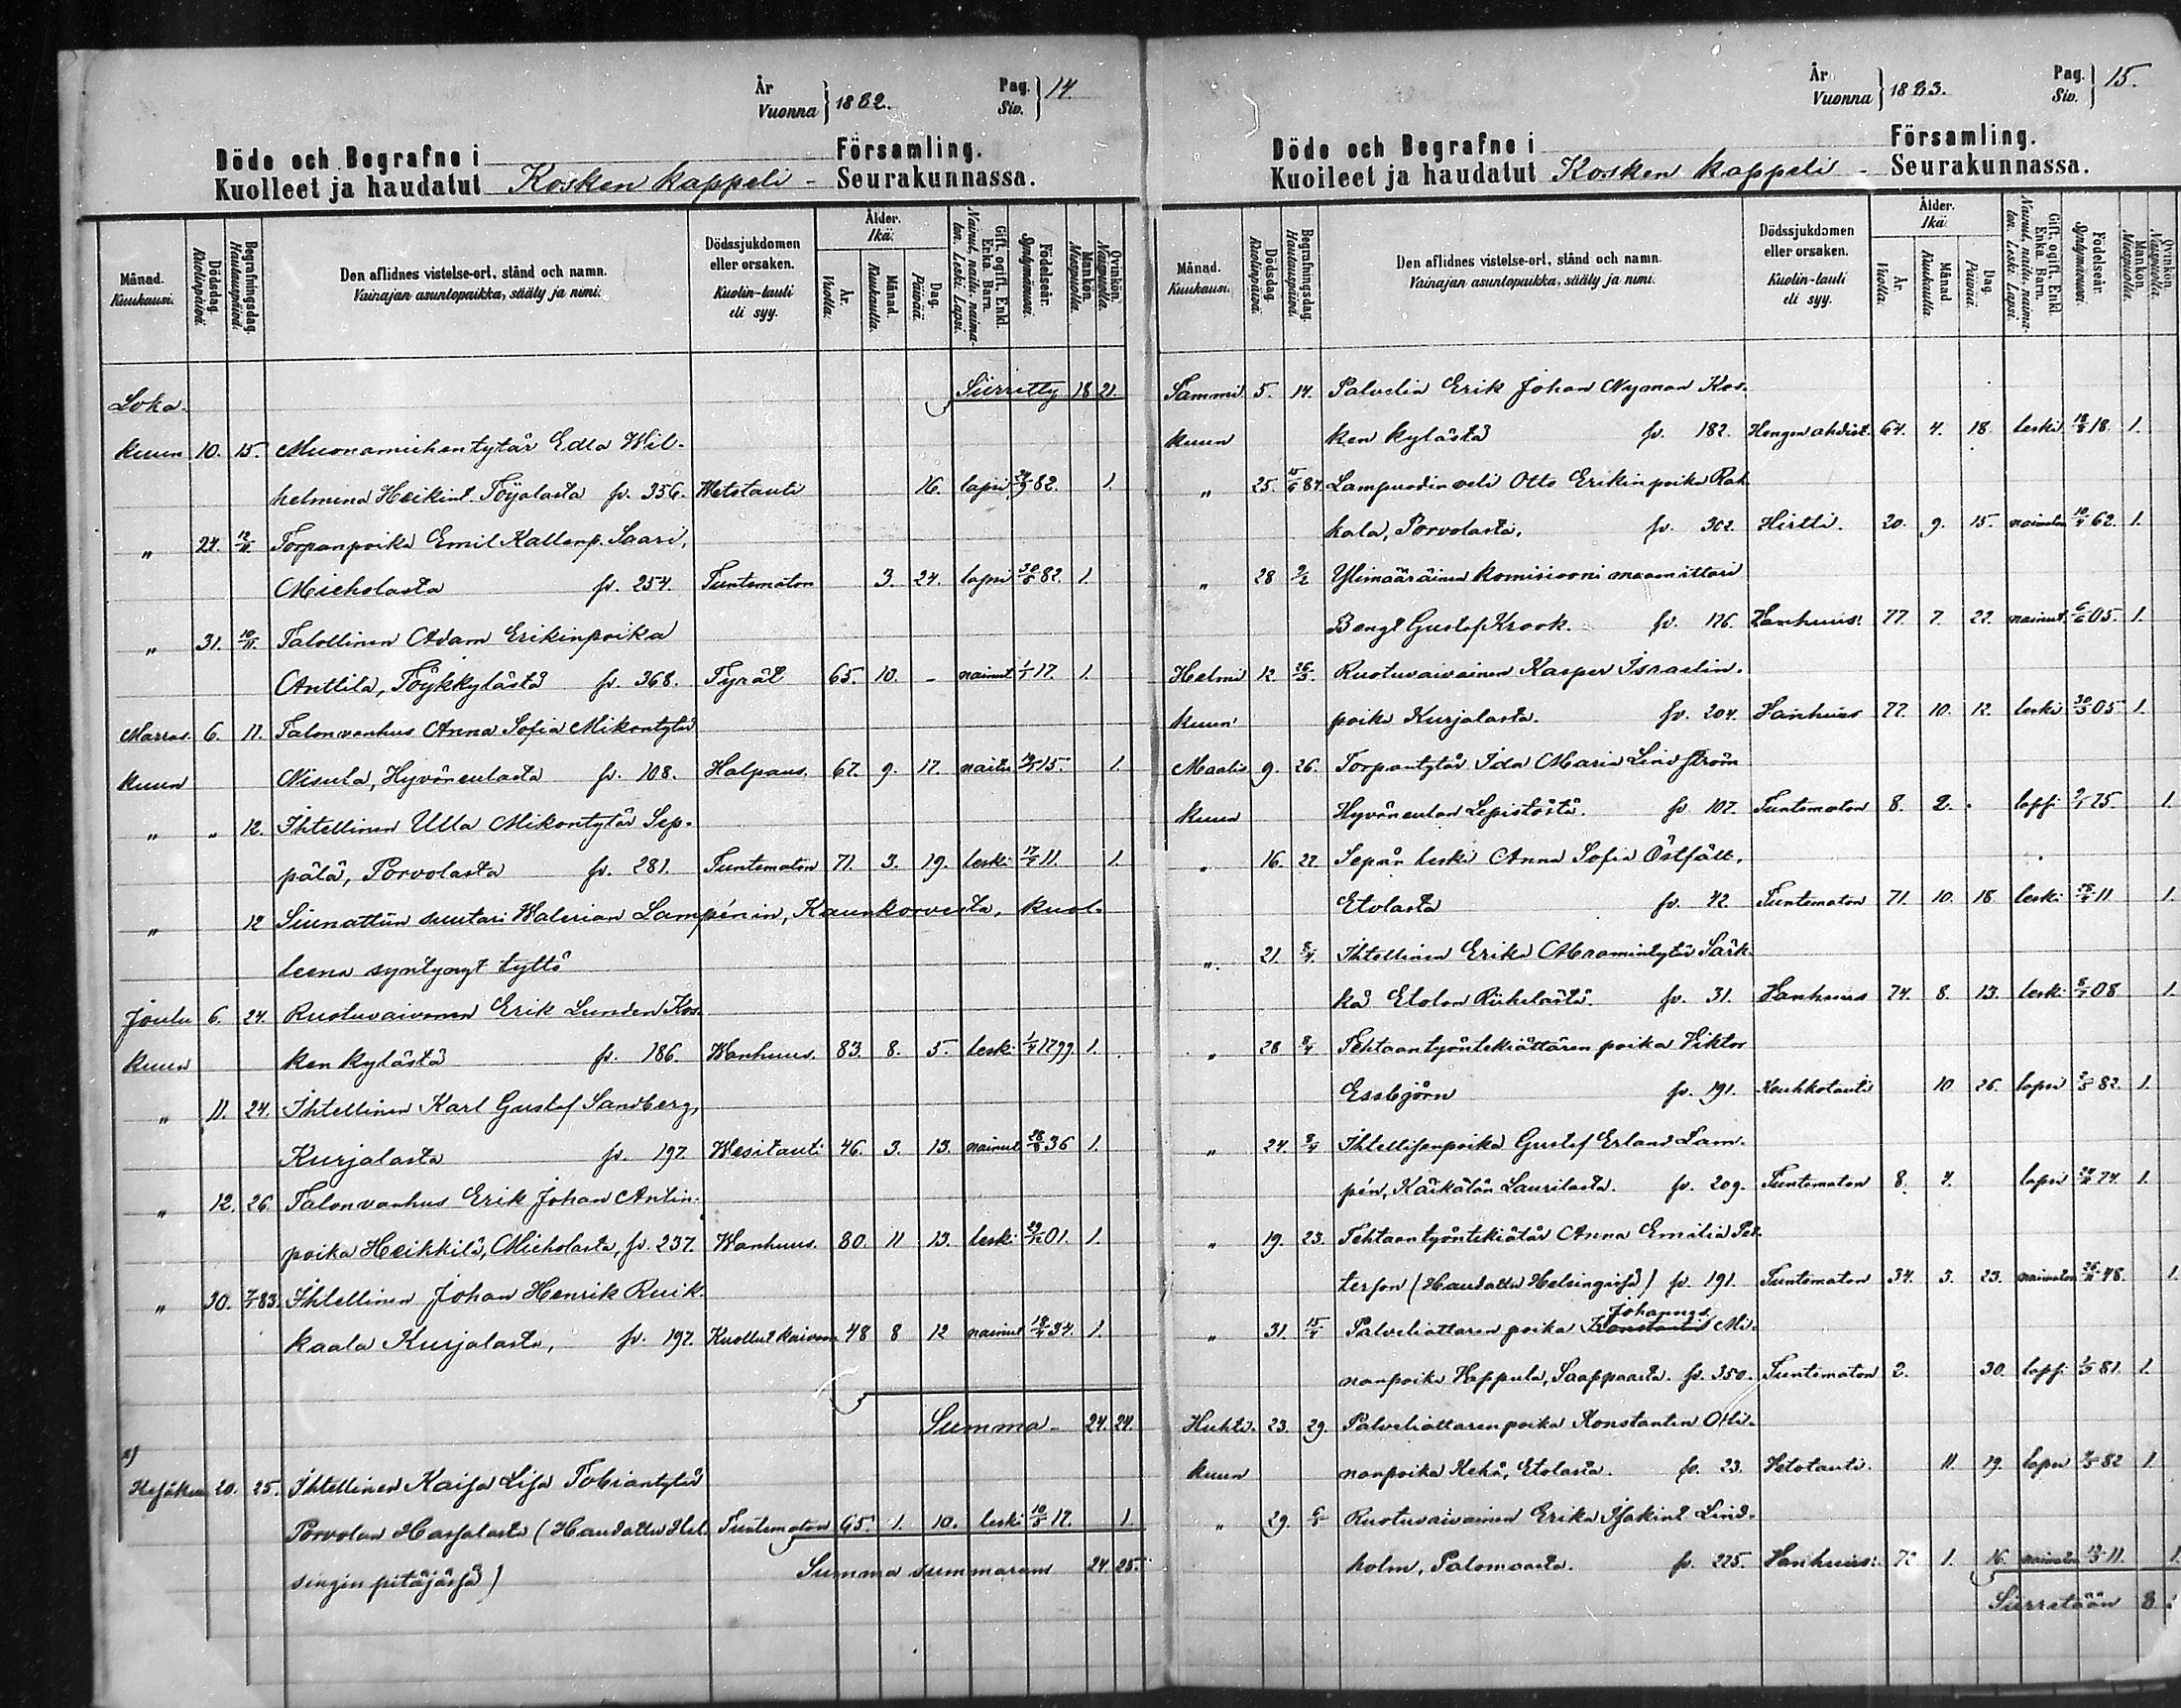 År
Vuonna } 1882.
Pag.
Siv. } 14.
Döde och Begrafne i Församling.
Kuolleet ja haudatut Kosken kappeli - Seurakunnassa.
Månad. Kuukausi. Dödsdag. Kuolinpäivä. Begrafningsdag. Hautauspäivä. Den aflidnes vistelse-ort, stånd och namn. Vainajan asuntopaikka, sääty ja nimi. Dödssjukdomen eller orsaken. Kuolin-tauti eli syy. Ålder. Ikä. År. Vuotta. Månad. Kuukautta. Dag. Päivää. Gift, ogift, Enkl. Enka. Barn. Nainut, naitu, naimaton. Leski. Lapsi. Födelseår. Syntymävuosi. Mankön. Miespuolia. Qvinkön. Naispuolia.
Loka- Siirretty 18 21.
kuun 10. 15. Muonamiehentytär Edla Wil-
helmina Heikint. Töyalasta fv. 356. Wetotauti 16. lapsi 24/9 82. 1.
" 24. 12/11 Torpanpoika Emil Kallenp. Saari,
Mieholasta fv. 254. Tuntematon 3. 24. lapsi 30/6 82. 1.
" 31. 10/11. Talollinen Adam Erikinpoika
Anttila, Töykkylästä fv. 368. Tyrät 65. 10. - nainut 1/1 17. 1.
Marras- 6. 11. Talonvanhus Anna Sofia Mikontytär
kuun Nisula, Hyvöneulasta fv. 108. Halpaus. 67. 9. 17. naitu 15. 1.
" " 12. Ihtellinen Ulla Mikontytär Sep-
pälä, Porvolasta fv. 281. Tuntematon 71. 3. 19. leski 17/7 11. 1.
" 12 Siunattiin suutari Walerian Lampénin, Kaunkorvesta, kuol-
leena syntynyt tyttö
Joulu 6. 24. Ruotuvaivanen Erik Lunden Kos-
kuun ken kylästä fv. 186. Wanhuus. 83. 8. 5. leski 1/4 1799. 1.
" 11. 24. Ihtellinen Karl Gustaf Sandberg,
Kurjalasta fv. 197 Wesitauti 46. 3. 13. nainut 28/8 36 1.
" 12. 26. Talonvanhus Erik Johan Antin-
poika Heikkilä, Mieholasta, fv. 237. Wanhuus. 80. 11 13. leski 29/12 01. 1.
" 30. 7/1 83. Ihtellinen Johan Henrik Ruik-
kaala Kurjalasta, fv. 197. Kuollut kaivoon 48 8 12 nainut 18/4 34. 1.
Summa - 24. 24.
Hejäkuu 20. 25. Ihtellinen Kaisa Lisa Tobiantytär
Porvolan Harjalasta (Haudattu Hel- Tuntematon 65. 1. 10. leski 10/5 17. 1.
singin pitäjässä) Summa summarum 24. 25.
År
Vuonna } 1883.
Pag.
Siv. } 15.
Döde och Begrafne i Församling.
Kuolleet ja haudatut Kosken kappeli - Seurakunnassa.
Månad. Kuukausi. Dödsdag. Kuolinpäivä. Begrafningsdag. Hautauspäivä. Den aflidnes vistelse-ort, stånd och namn. Vainajan asuntopaikka, sääty ja nimi. Dödssjukdomen eller orsaken. Kuolin-tauti eli syy. Ålder. Ikä. År. Vuotta. Månad Kuukautta. Dag. Päivää. Gift, ogift, Enkl. Enka. Barn. Nainut, naitu, naimaton. Leski. Lapsi. Födelseår. Syntymävuosi. Mankön. Miespuolia. Qvinkön. Naispuolia.
Tammi 5. 14. Palvelia Erik Johan Nyman Kos-
kuun ken kylästä fv. 182. Hengen ahdist. 64. 4. 18. leski 18/8 18. 1.
" 25. 15/6 84. Lampuodin veli Otto Erikinpoika Rah-
kala, Porvolasta, fv. 302. Hirtti. 20. 9. 15. naimaton 10/4 62. 1.
" 28 2/2 Ylimääräinen komisiooni maamittari
Bengt Gustaf Krook. fv. 176. Wanhuus. 77. 7. 22. nainut 6/6 05. 1.
Helmi 12. 26/3. Ruotuvaivainen Kasper Israelin-
kuun poika Kurjalasta. fv. 204. Wanhuus 77. 10. 12. leski 30/3 05. 1.
Maalis 9. 26. Torpantytär Ida Maria Lindström
kuun Hyvöneulan Lepistöstä. fv. 107. Tuntematon 8. 2. lapsi 75. 1.
" 16. 22 Sepän leski Anna Sofia Östfält,
Etolasta fv. 42. Tuntematon 71. 10. 18 leski 28/4 11 1.
" 21. 8/4. Ihtellinen Erika Abramintytär Särk-
kä Etolan Riihelästä. fv. 31. Wanhuus 74. 8. 13. leski 8/7 08 1.
" 28 8/4 Tehtaantyöntekiättären poika Viktor
Essbjörn fv. 191. Keuhkotauti 10 26. lapsi 2/5 82. 1.
" 24. 8/4 Ihtellisenpoika Gustaf Erland Lam-
pén, Käikälän Laurilasta. fv. 209. Tuntematon 8. 4. lapsi 74. 1.
" 19. 23. Tehtaantyöntekiätär Anna Emilia Pet-
terson (Haudattu Helsingissä) fv. 191. Tuntematon 34. 3. 23. naimaton 26/11 48. 1.
Johannes
" 31. 15/4 Palveliattaren poika Konstantin Mi-
nanpoika Heppula, Saappaasta. fv. 350. Tuntematon 2. 30. lapsi 81. 1.
Huhti- 23. 29. Palveliattarenpoika Konstantin Otti-
kuun nanpoika Kehä, Etolasta. fv. 23. Vetotauti. 11. 19. lapsi 82 1
" 29. 6/5 Ruotuvaivainen Erika Isakint. Lind-
holm, Palomaasta. fv. 225. Wanhuus. 72 1. 16. naimaton 11. 1.
Siirretään 8.